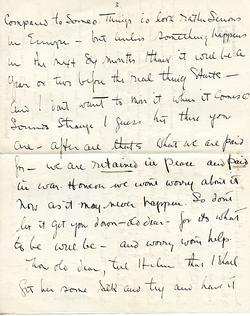 3
Compared to Someo. Things is look rather serious
in Europe - but unless something happens
in the next 8y months there it will be a
year or two before the real thing starts -
and I don't want to miss it when it comes.
Sounds strange I guess but there you
are - after are thats what we are paid
for - we are retained in peace and paid
in war. However we wont worry about it
now as it may never happen. So dont
let it get you down - old dear - for its what
to be will be - and worry wont help.
Now old dear, tell Helen that I shall
get her some silk and try and have it